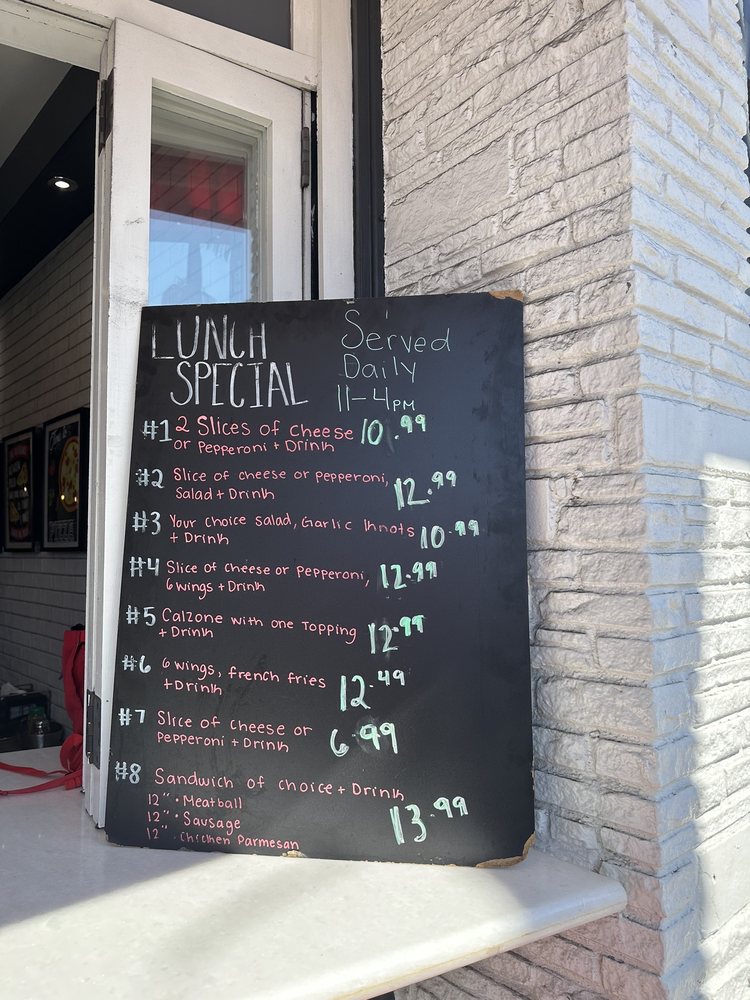 LUNCH
SPECIAL
Served
Daily
11-4PM
#1 2 Slices of cheese 10.99
or Pepperoni + Drink
#2 Slice of cheese or pepperoni, 12.99
Salad + Drink
#3 Your choice salad, Garlic knots 10.99
+ Drink
#4 Slice of cheese or Pepperoni, 12.99
6 wings + Drink
#5 Calzone with one Topping 12.99
+ Drink
#6 6 wings, french fries 12.49
+ Drink
#7 Slice of cheese or 6.99
Pepperoni + Drink
#8 Sandwich of choice + Drink 13.99
12" • Meatball
12" • Sausage
12" • Chicken Parmesan